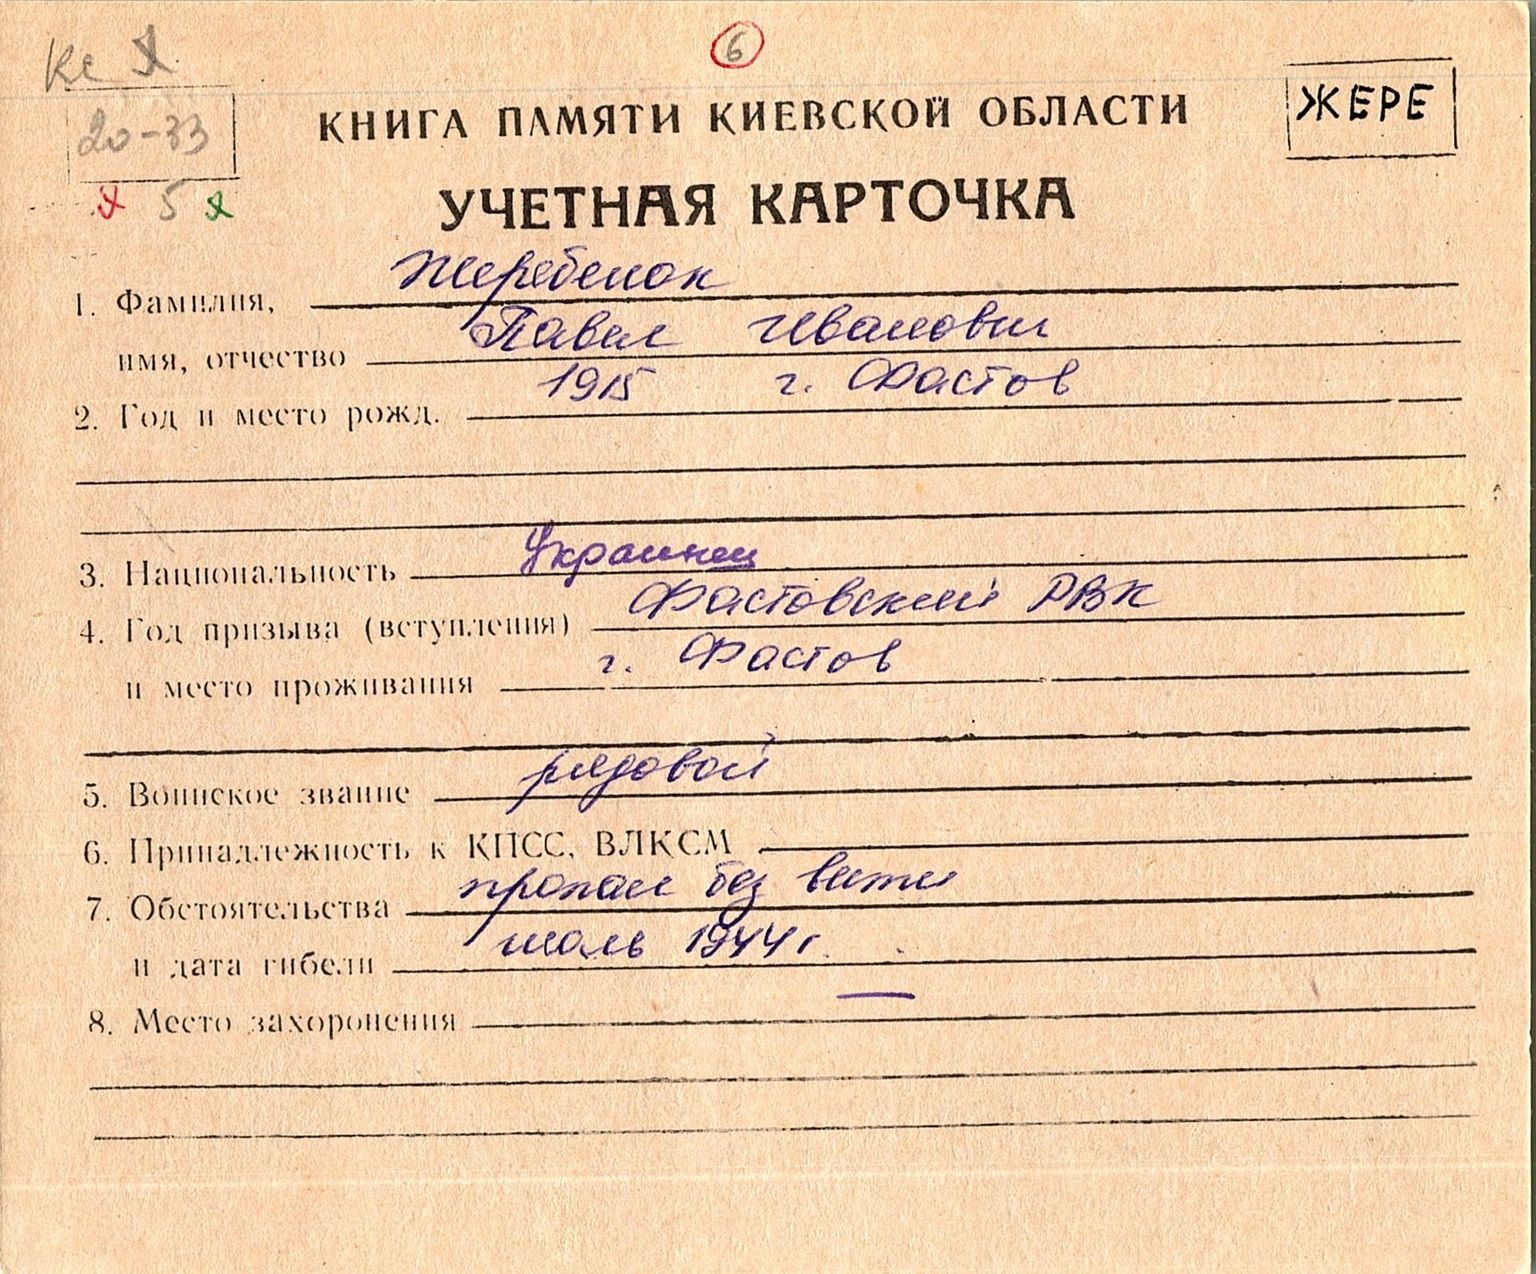 6
20-33
КНИГА ПАМЯТИ КИЕВСКОЙ ОБЛАСТИ
ЖЕРЕ
5
УЧЕТНАЯ КАРТОЧКА
1. Фамилия, Жеребенок
имя, отчество Павел Иванович
2. Год и место рожд. 1915 г. Фастов
3. Национальность Украинец
4. Год призыва (вступления) Фастовский РВК
и место проживания г. Фастов
5. Воинское звание рядовой
6. Принадлежность к КПСС, ВЛКСМ
7. Обстоятельства пропал без вести
и дата гибели июль 1944 г.
8. Место захоронения —